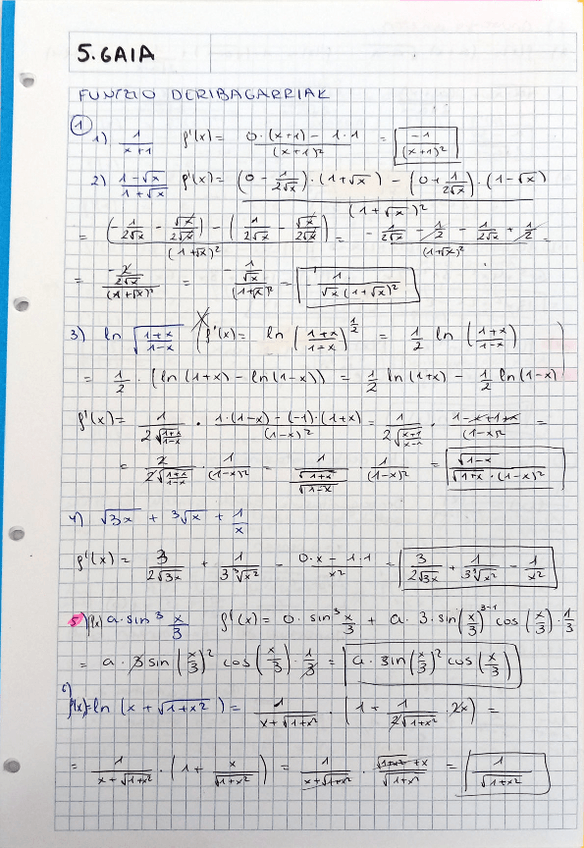 5. GAIA
FUNTZIO DERIBAGARRIAK
①
1) 1/(x+1) f'(x) = (0·(x+1) - 1·1)/(x+1)² = -1/(x+1)²
2) (1-√x)/(1+√x) f'(x) = ((0 - 1/(2√x))·(1+√x) - (0+1/(2√x))·(1-√x))/(1+√x)²
= ((-1/(2√x) - √x/(2√x)) - (1/(2√x) - √x/(2√x)))/(1+√x)² = (-1/(2√x) - 1/2 - 1/(2√x) + 1/2)/(1+√x)² =
= (-2/(2√x))/(1+√x)² = (-1/√x)/(1+√x)² = -1/(√x(1+√x)²)
3) ln √((1+x)/(1-x)) f'(x) = ln((1+x)/(1-x))^(1/2) = 1/2 ln((1+x)/(1-x))
= 1/2·(ln(1+x) - ln(1-x)) = 1/2 ln(1+x) - 1/2 ln(1-x)
f'(x) = 1/(2√((1+x)/(1-x))) · (1·(1-x) - (-1)·(1+x))/(1-x)² = 1/(2√((x+1)/(x-1))) · (1-x+1+x)/(1-x)² =
= 2/(2√((1+x)/(1-x))) · 1/(1-x)² = 1/(√(1+x)/√(1-x)) · 1/(1-x)² = √(1-x)/(√(1+x)·(1-x)²)
4) √3x + ³√x + 1/x
f'(x) = 3/(2√3x) + 1/(3 ³√x²) - (0·x - 1·1)/x² = 3/(2√3x) + 1/(3 ³√x²) - 1/x²
5) f(x) a·sin³ x/3 f'(x) = 0·sin³ x/3 + a·3·sin(x/3)³⁻¹ cos(x/3)·1/3
= a·3 sin(x/3)² cos(x/3)·1/3 = a·sin(x/3)² cos(x/3)
6)
f(x) = ln(x+√(1+x²)) = 1/(x+√(1+x²)) · (1 + 1/(2√(1+x²)) · 2x) =
= 1/(x+√(1+x²)) · (1 + x/√(1+x²)) = 1/(x+√(1+x²)) · (√(1+x²)+x)/√(1+x²) = 1/√(1+x²)